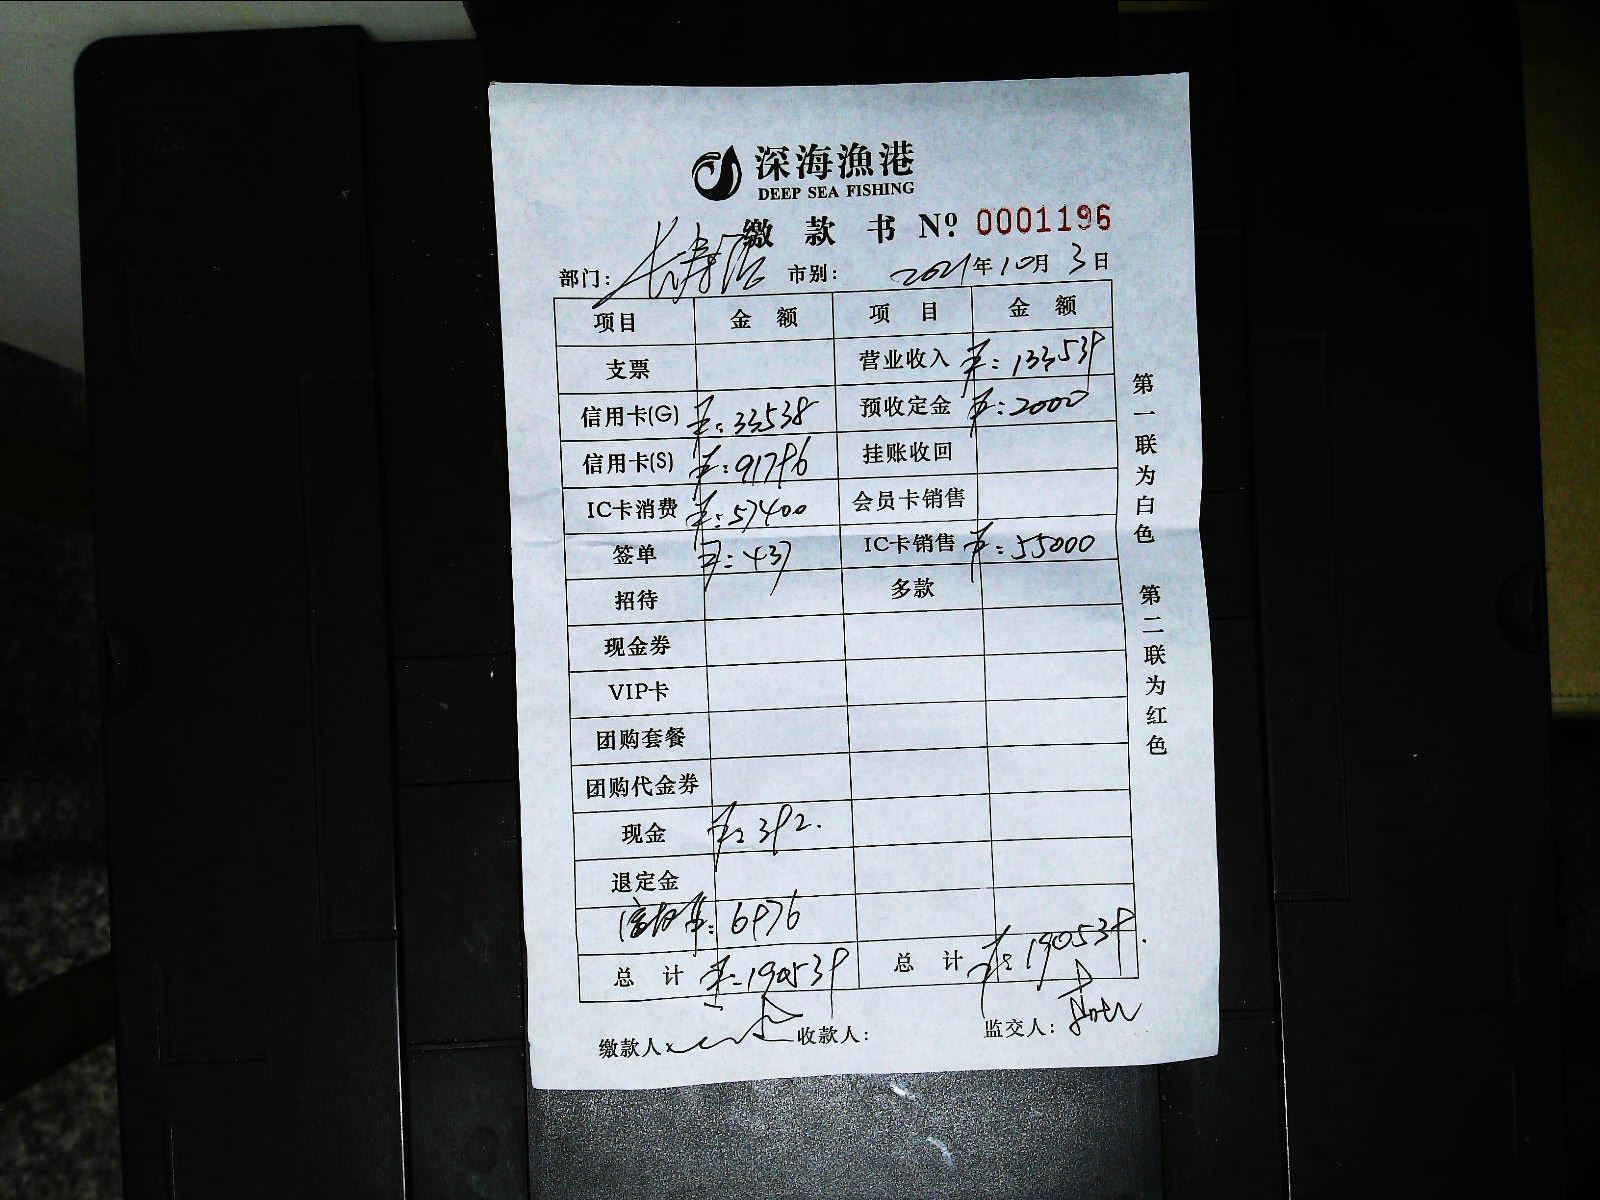 深海漁港
DEEP SEA FISHING
缴款书 Nº: 0001196
部门: 长寿店 市别: 2021年10月3日
项目 金额 项目 金额
支票 营业收入 ¥:133539
信用卡(G) ¥:33538 预收定金 ¥:2000
信用卡(S) ¥:91796 挂账收回
IC卡消费 ¥:57400 会员卡销售
签单 ¥:437 IC卡销售 ¥:55000
招待 多款
现金券
VIP卡
团购套餐
团购代金券
现金 ¥:392.
退定金
6976
总计 ¥:190539 总计 ¥:190539.
缴款人: 收款人: 监交人:
第一联为白色 第二联为红色